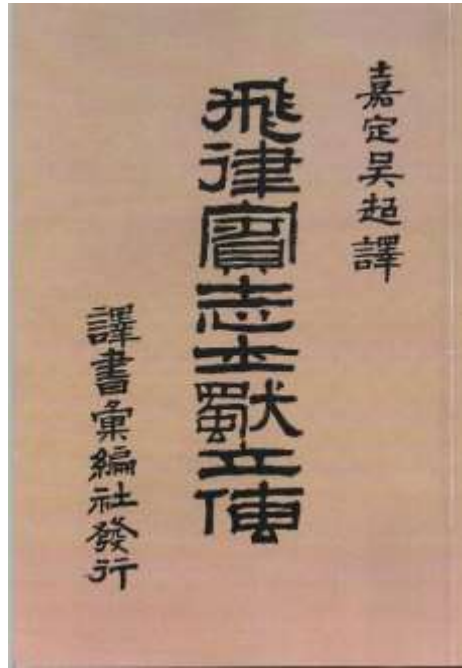 嘉定吳超譯
飛律賓志士獨立傳
譯書彙編社發行